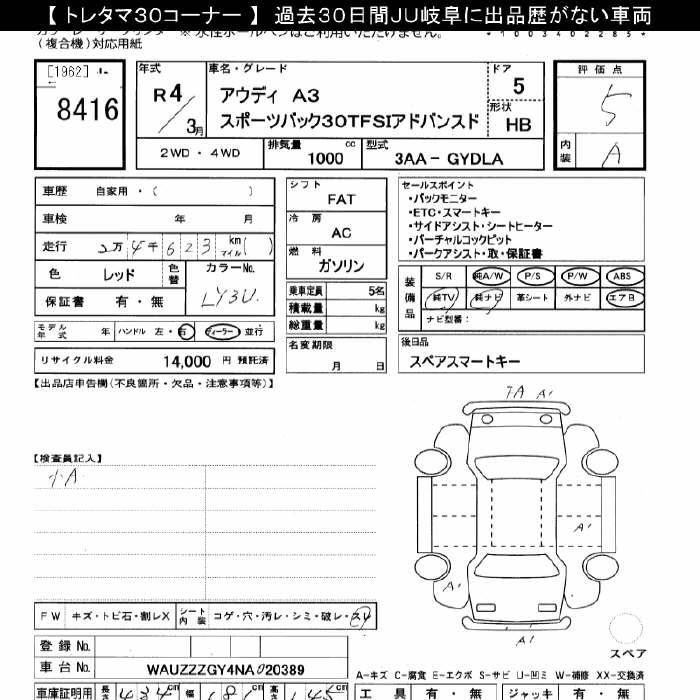 【 トレタマ30コーナー 】 過去30日間JU岐阜に出品歴がない車両
(複合機)対応用紙
[1962]
8416
年式
R4
3月
車名・グレード
アウディ A3
スポーツバック30TFSIアドバンスド
ドア
5
形状
HB
評価点
5
内装
A
2WD・4WD
排気量
1000 cc
型式
3AA-GYDLA
車歴 自家用・( )
車検 年 月
走行 2万4千623 km マイル( )
色 レッド 色替
カラーNo.
LY3U.
保証書 有・無
モデル年式 年 ハンドル 左・右 ディーラー 並行
リサイクル料金 14,000 円 預託済
シフト
FAT
冷房
AC
燃料
ガソリン
乗車定員 5名
積載量 kg
総重量 kg
名変期限
月 日
セールスポイント
・バックモニター
・ETC・スマートキー
・サイドアシスト・シートヒーター
・バーチャルコックピット
・パークアシスト・取・保証書
装備品
S/R 純A/W P/S P/W ABS
純TV 純ナビ 革シート 外ナビ エアB
ナビ型番:
後日品
スペアスマートキー
【出品店申告欄(不良箇所・欠品・注意事項等)】
【検査員記入】
小A
A A'
A'
A'
A'
FW キズ・トビ石・割レX
シート内装 コゲ・穴・汚レ・シミ・破レ・スレ
スペア
登録No.
車台No. WAUZZZGY4NA020389
A-キズ C-腐食 E-エクボ S-サビ U-凹ミ W-補修 XX-交換済
車庫証明用 長さ 434cm 幅 181 高さ 145cm
工具 有・無 ジャッキ 有・無